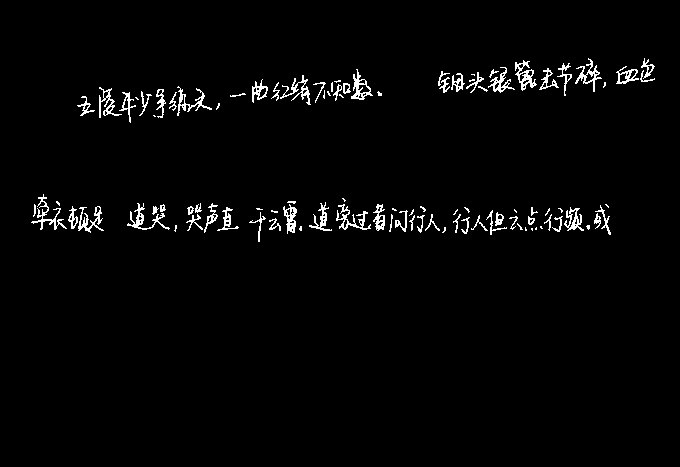 五陵年少争缠头，一曲红绡不知数。 钿头银篦击节碎，血色
牵衣顿足 道哭，哭声直 干云霄。道旁过者问行人，行人但云点行频。或